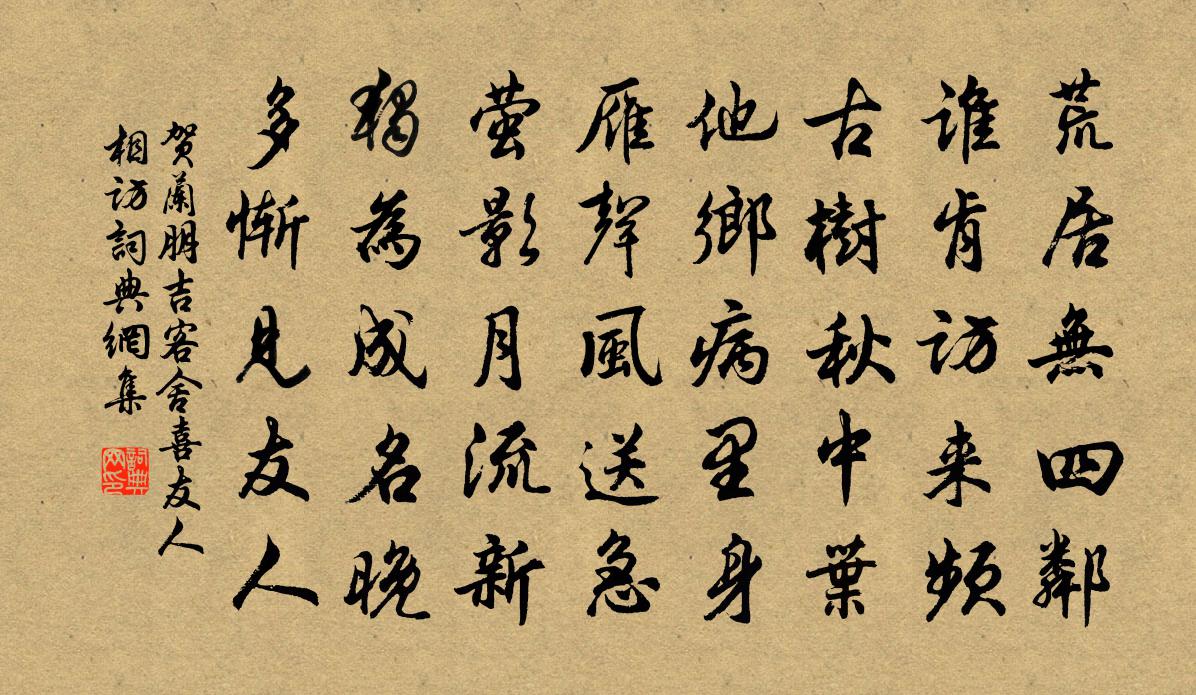 荒居無四鄰
誰肯訪来頻
古樹秋中葉
他鄉病里身
雁聲風送急
萤影月流新
獨為成名晚
多慚見友人
賀蘭朋吉客舍喜友人
相訪詞典網集
詞典
网印